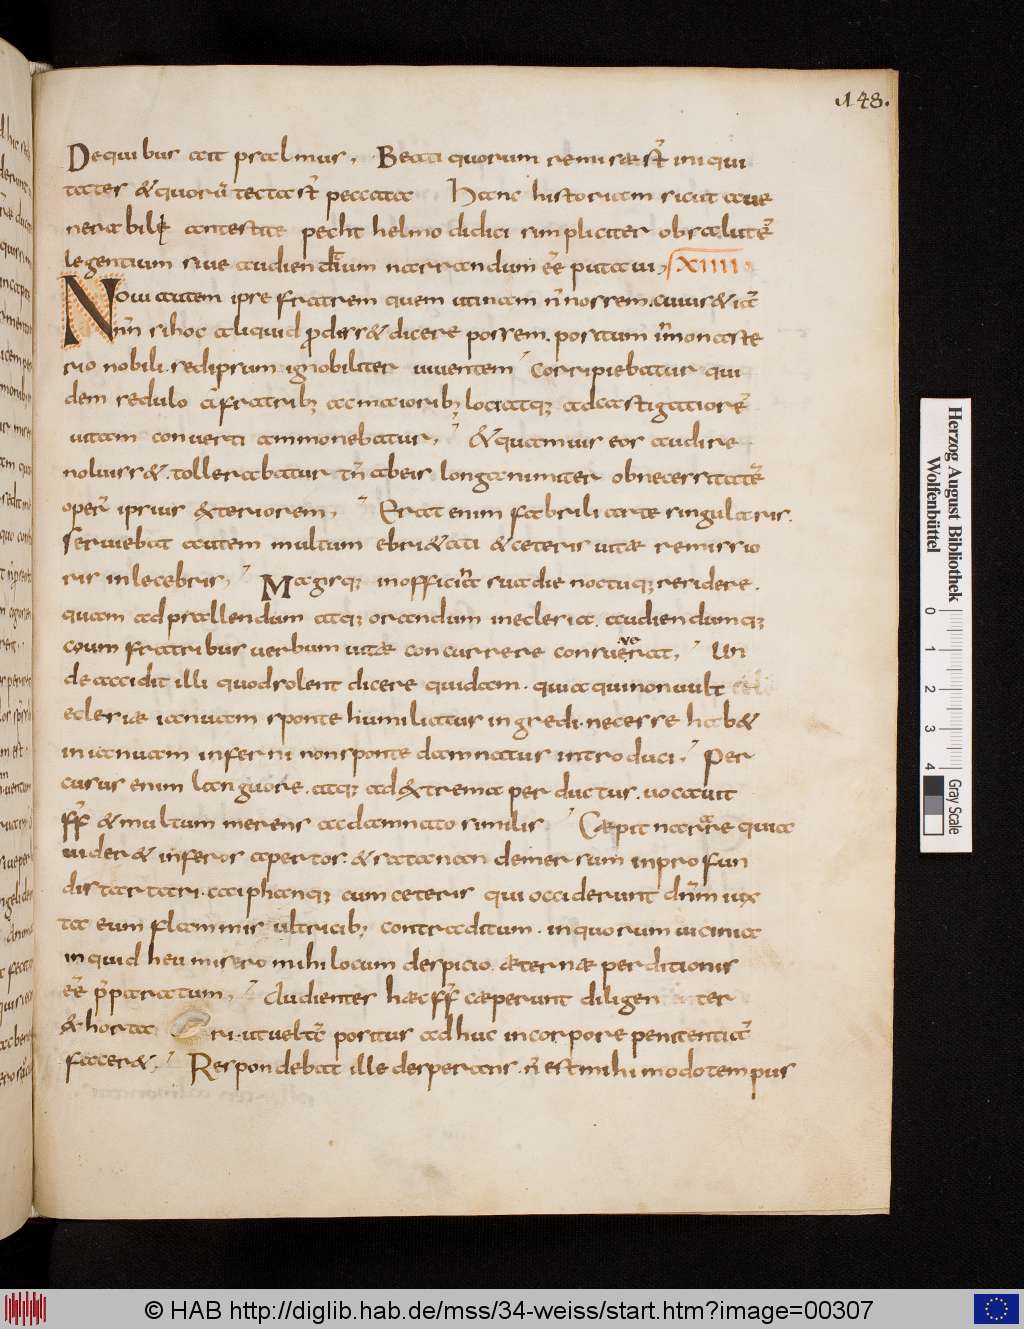 148.
Dequibus ait psalmus, Beati quorum remissae st̄ iniqui
tates & quorū tecta st̄ peccata Hanc historiam sicut aue
nerabili antestite pecht helmo didici simpliciter obsalutē
legentium siue audientium narrandum eē putaui, XIIII
Noui autem ipse fratrem quem utinam n̄ nossem. cuius & iā
nn̄ sihoc aliquid prodiss& dicere possem. positum in monaste
rio nobili. sed ipsum ignobiliter uiuentem Corripiebatur qui
dem sedulo afratrib; acmaiorib; lociatq; adcastigatiorē
uitam conuerti ammonebatur, &quamuis eos audire
noluiss&. tollerabatur tn̄ abeis longanimiter obnecessitatē
operū ipsius exteriorem, Erat enim fabrili arte singularis.
seruiebat autem multum ebri&ati &ceteris uitae remissio
ris inlecebris, Magisq; inofficina sua die noctuq; residere.
quam adpsallendum atq; orandum ineclesia. audiendumq;
cum fratribus uerbum uitae concurrere consueuerat, Un
de accidit illi quodsolent dicere quidam. quia quinonuult
eclesiae ianuam sponte humiliatus ingredi. necesse hab&
in ianuam inferni nonsponte damnatus introduci, Per
cusus enim languore. atq; ad extrema perductus. uocauit
fr̄ &multum merens acdamnato similis Caepit narrare quia
uider& inferos apertos. & satanan demersum inprofun
distartari. caiphanq; cum ceteris qui occiderunt dn̄m iux
ta eum flammis ultricib; contraditum. inquorum uicinia
inquid heu misero mihi locum despicio. aeternae perditionis
eē p̄paratum, Audientes haec fr̄ caeperunt diligenter
& horta ri. ut uel tc̄ positus adhuc incorpore penitentiā
facer&, Respondebat ille desperans. n̄ est mihi modo tempus
Herzog August Bibliothek
Wolfenbüttel
0 1 2 3 4
Gray Scale
© HAB http://diglib.hab.de/mss/34-weiss/start.htm?image=00307